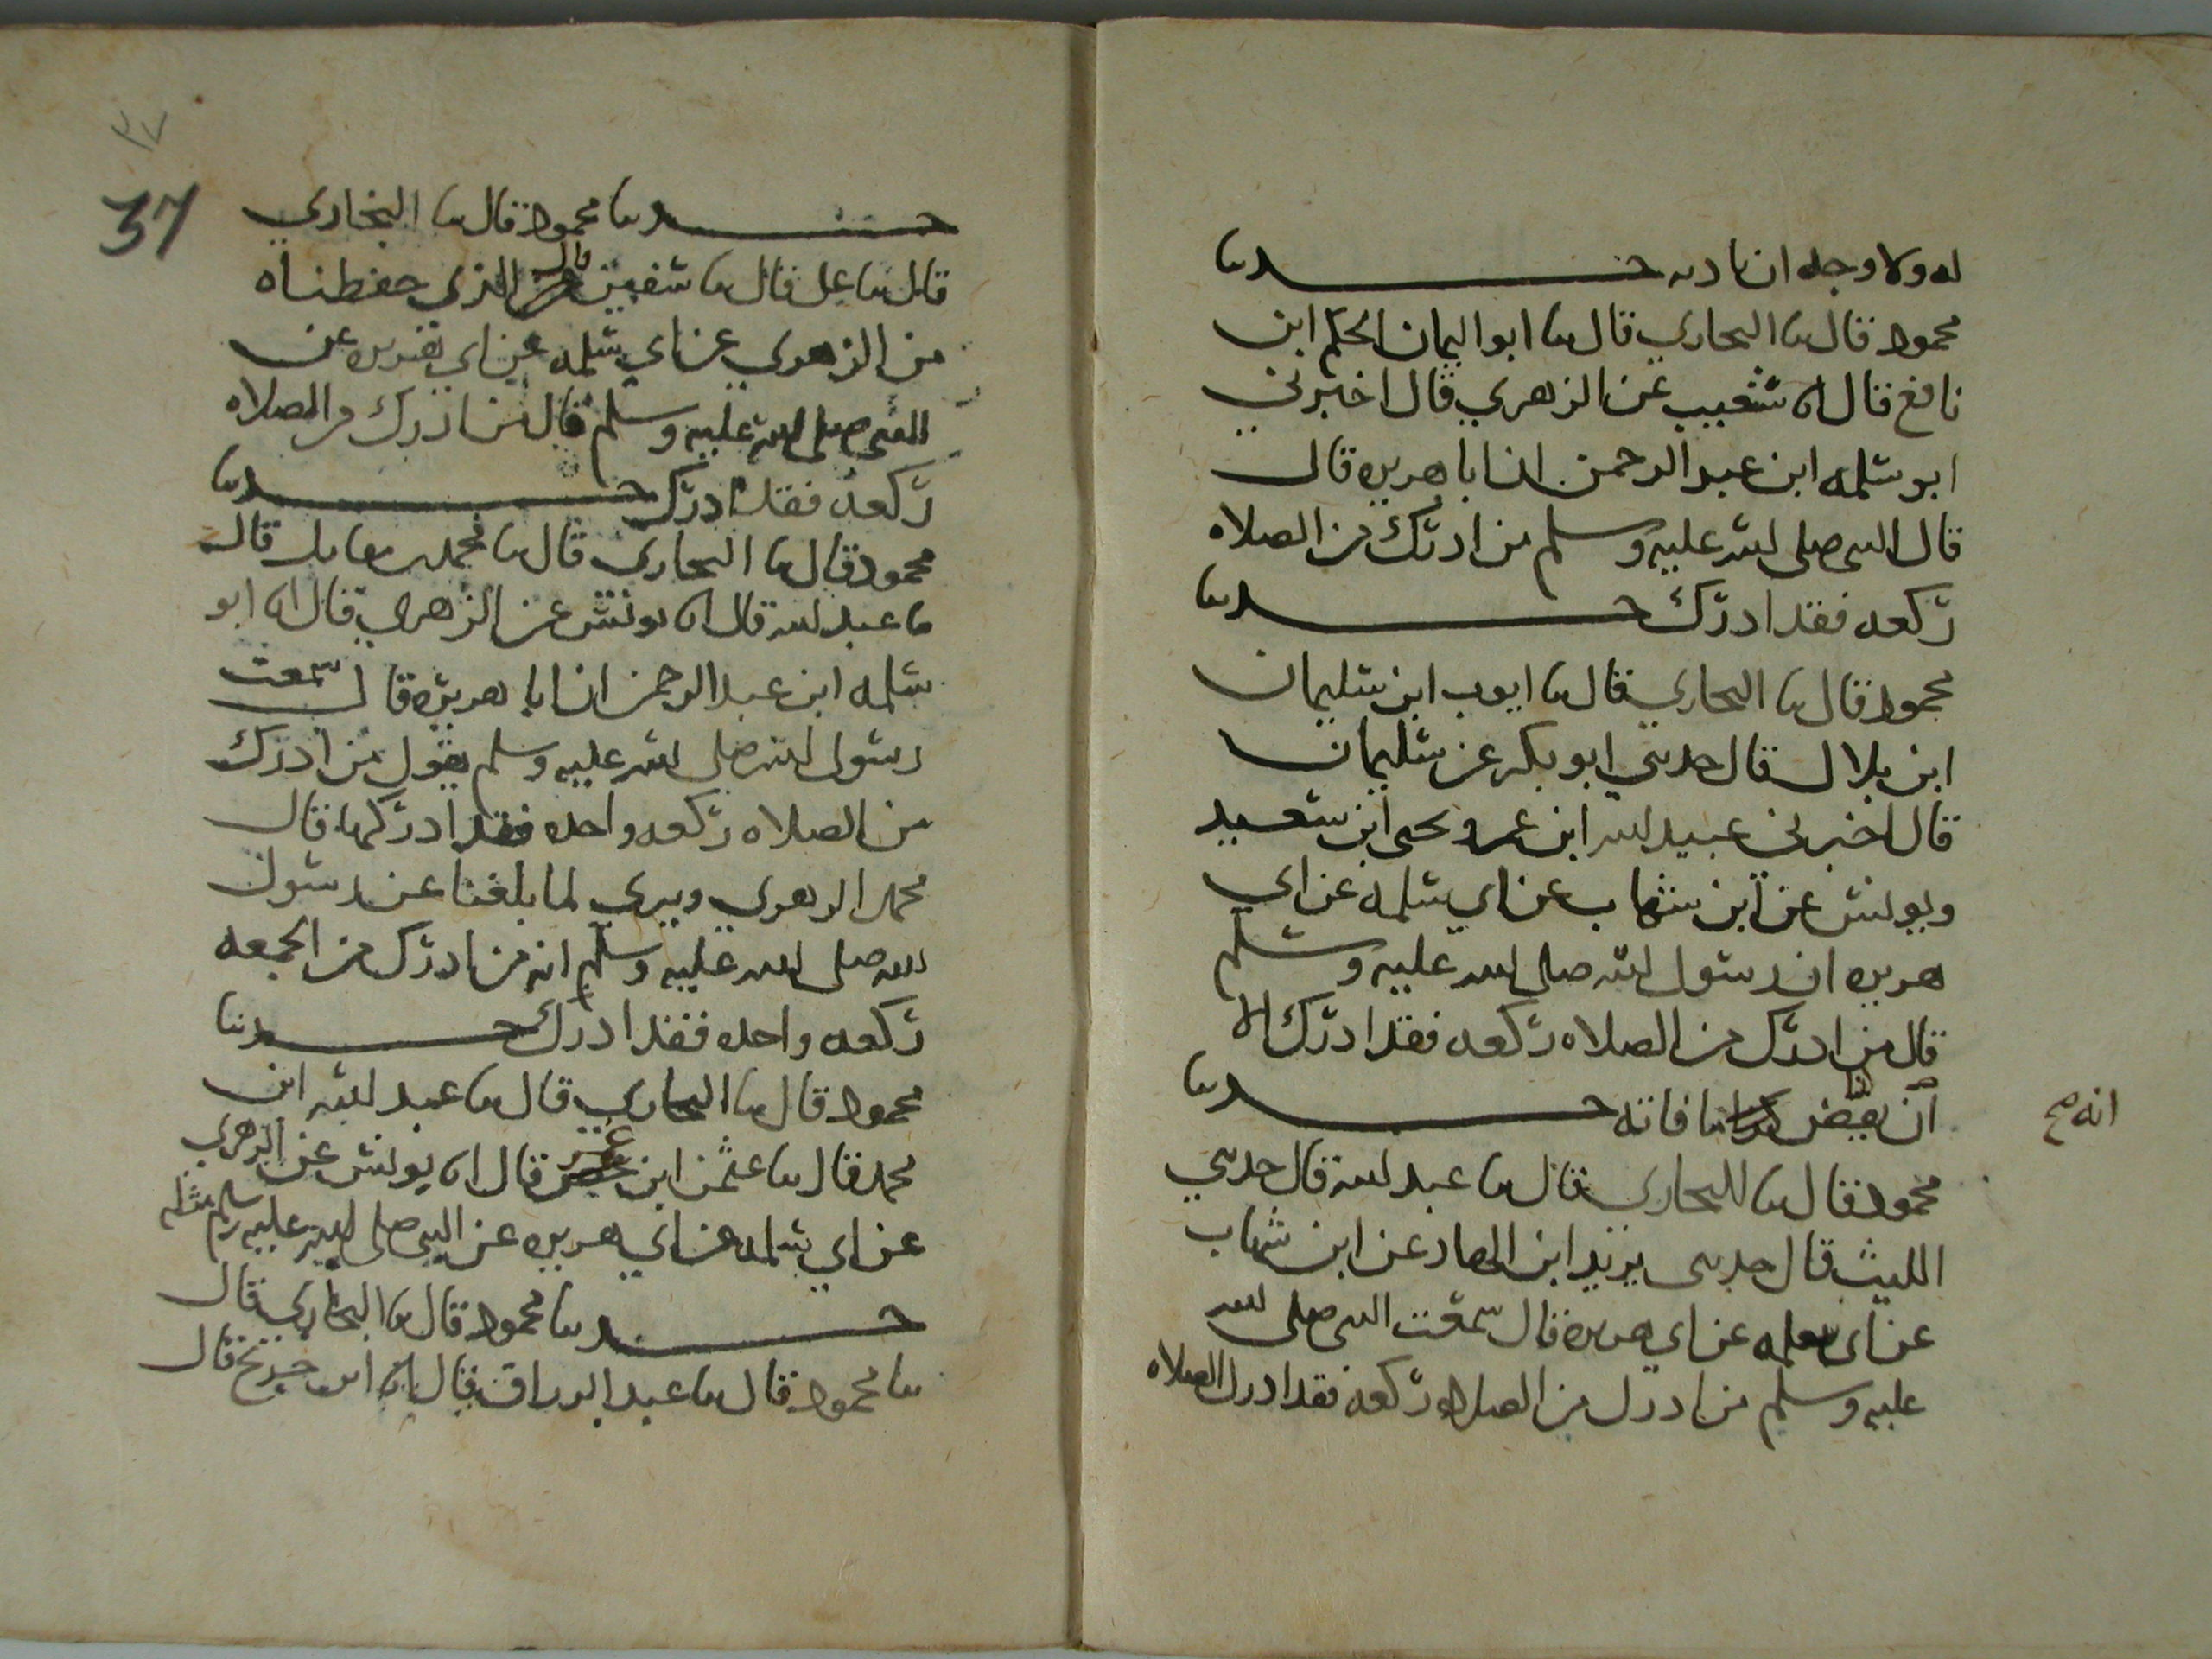 له ولا وجه ان حدثنا
محمود قال نا البخاري قال نا ابو اليمان الحكم ابن
نافع قال انا شعيب عن الزهري قال اخبرني
ابو سلمه ابن عبد الرحمن ان ابا هريره قال
قال النبي صلى الله عليه وسلم من ادرك من الصلاه
ركعه فقد ادرك حدثنا
محمود قال نا البخاري قال نا ايوب ابن سليمان
ابن بلال قال حدثني ابو بكر عن سليمان
قال اخبرني عبيد الله ابن عمر ويحيى ابن سعيد
ويونس عن ابن شهاب عن ابي سلمه عن ابي
هريره ان رسول الله صلى الله عليه وسلم
قال من ادرك من الصلاه ركعه فقد ادرك الا
انه صح
ان يقضي ما فاته حدثنا
محمود قال نا البخاري قال نا عبد الله قال حدثني
الليث قال حدثني يزيد ابن الهاد عن ابن شهاب
عن ابي سلمه عن ابي هريره قال سمعت النبي صلى الله
عليه وسلم من ادرك من الصلاه ركعه فقد ادرك الصلاه
٣٧
37
حدثنا محمود قال نا البخاري
قال نا علي قال نا سفين قال الذي حفظناه
من الزهري عن ابي سلمه عن ابي هريره عن
النبي صلى الله عليه وسلم قال من ادرك من الصلاه
ركعه فقد ادرك حدثنا
محمود قال نا البخاري قال نا محمد بن مقاتل قال
نا عبد الله قال انا يونس عن الزهري قال انا ابو
سلمه ابن عبد الرحمن ان ابا هريره قال سمعت
رسول الله صلى الله عليه وسلم يقول من ادرك
من الصلاه ركعه واحده فقد ادركها قال
محمد الزهري ويرى لما بلغنا عن رسول
الله صلى الله عليه وسلم انه من ادرك من الجمعه
ركعه واحده فقد ادرك حدثنا
محمود قال نا البخاري قال نا عبد الله ابن
محمد قال نا عثمن ابن عمر قال انا يونس عن الزهري
عن ابي سلمه عن ابي هريره عن النبي صلى الله عليه وسلم مثله
حدثنا محمود قال نا البخاري قال
نا محمود قال نا عبد الرزاق قال انا ابن جريج قال